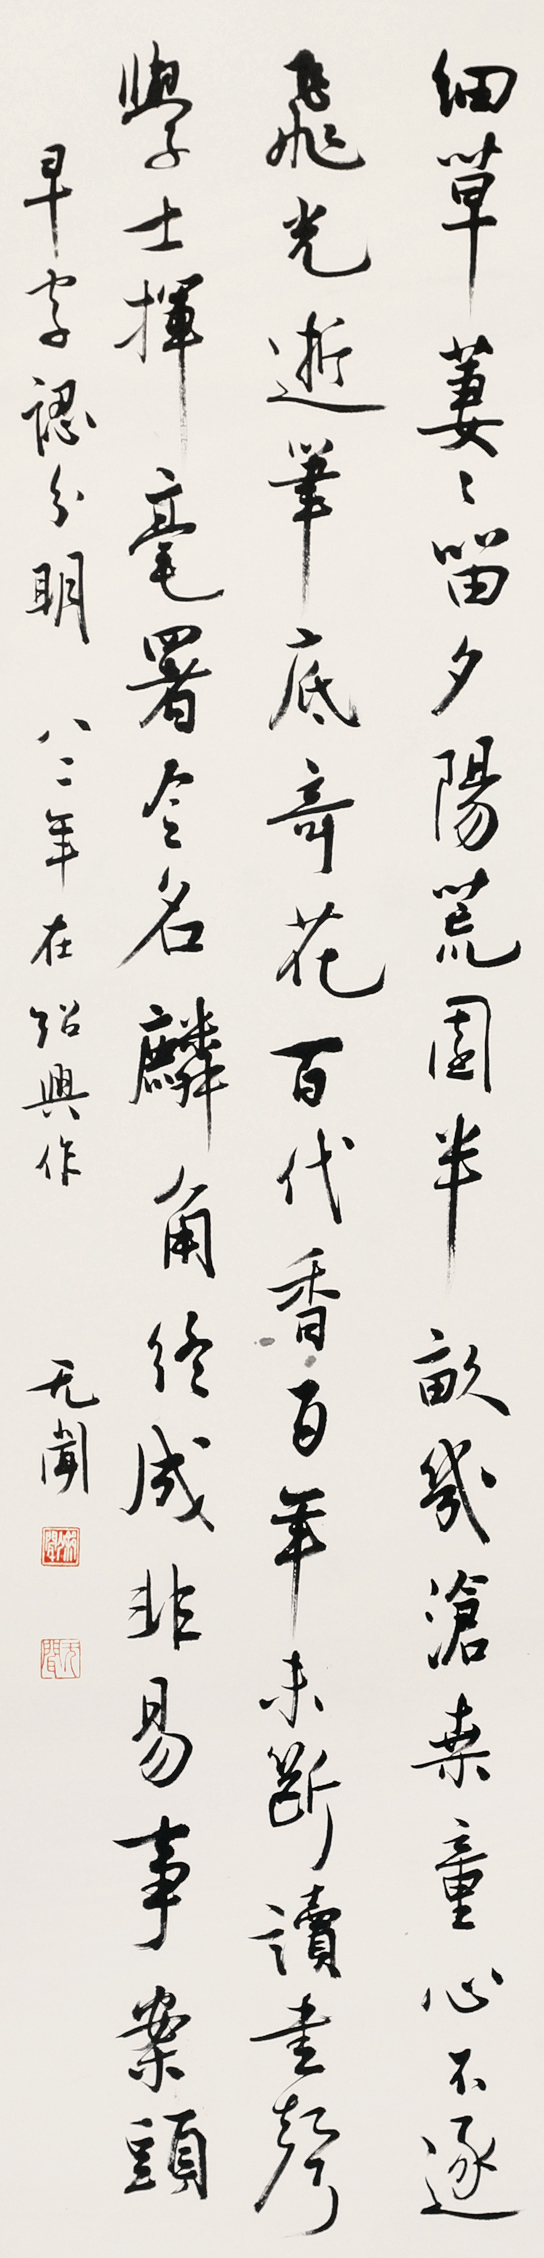 細草萋〻留夕陽荒園半畝幾滄桑童心不逐
飛光逝筆底奇花百代香百年未斷讀書聲
學士揮毫署令名麟角終成非易事案頭
早字認分明 八二年在紹興作 无聞
无聞